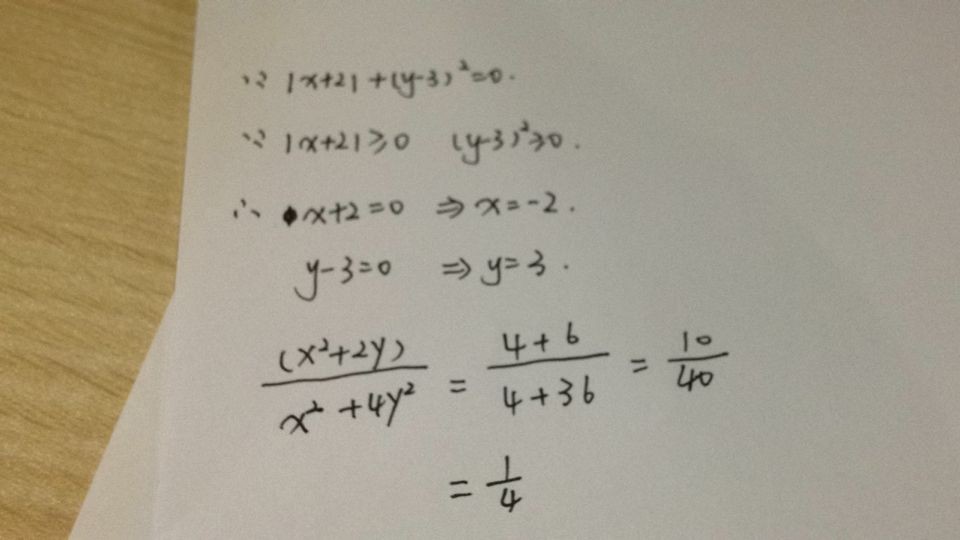 ∵ |x+2|+(y-3)²=0.
∵ |x+2|≥0 (y-3)²≥0.
∴ x+2=0 ⇒ x=-2.
y-3=0 ⇒ y=3.
(x²+2y)/(x²+4y²) = (4+6)/(4+36) = 10/40
= 1/4